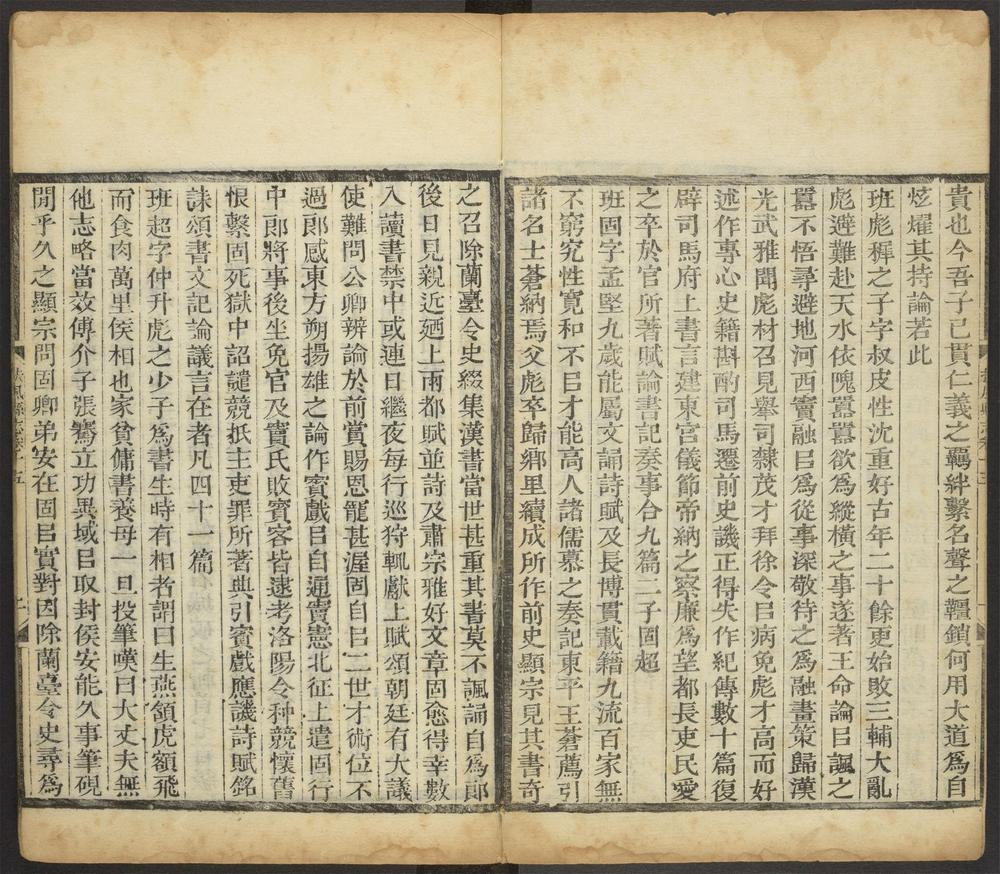 貴也今吾子已貫仁義之羈絆繫名聲之韁鎖何用大道爲自
炫燿其持論若此
班彪穉之子字叔皮性沈重好古年二十餘更始敗三輔大亂
彪避難赴天水依隗囂囂欲爲縱橫之事遂著王命論㠯諷之
囂不悟尋避地河西竇融㠯爲從事深敬待之爲融畫策歸漢
光武雅聞彪材召見舉司隸茂才拜徐令㠯病免彪才高而好
述作專心史籍斟酌司馬遷前史譏正得失作紀傳數十篇復
辟司馬府上書言建東宮儀節帝納之察廉爲望都長吏民愛
之卒於官所著賦論書記奏事合九篇二子固超
班固字孟堅九歲能屬文誦詩賦及長博貫載籍九流百家無
不窮究性寬和不㠯才能高人諸儒慕之奏記東平王蒼薦引
諸名士蒼納焉父彪卒歸鄉里續成所作前史顯宗見其書奇
之召除蘭臺令史綴集漢書當世甚重其書莫不諷誦自爲郎
後日見親近廼上兩都賦並詩及肅宗雅好文章固愈得幸數
入讀書禁中或連日繼夜每行巡狩輒獻上賦頌朝廷有大議
使難問公卿辨論於前賞賜恩寵甚渥固自㠯二世才術位不
過郎感東方朔揚雄之論作賓戲㠯自通竇憲北征上遣固行
中郎將事後坐免官及竇氏敗賓客皆逮考洛陽令种競懷舊
恨繫固死獄中詔譴競抵主吏罪所著典引賓戲應譏詩賦銘
誄頌書文記論議言在者凡四十一篇
班超字仲升彪之少子爲書生時有相者謂曰生燕頷虎額飛
而食肉萬里侯相也家貧傭書養母一旦投筆嘆曰大丈夫無
他志略當效傅介子張騫立功異域㠯取封侯安能久事筆硯
閒乎久之顯宗問固卿弟安在固㠯實對因除蘭臺令史尋爲